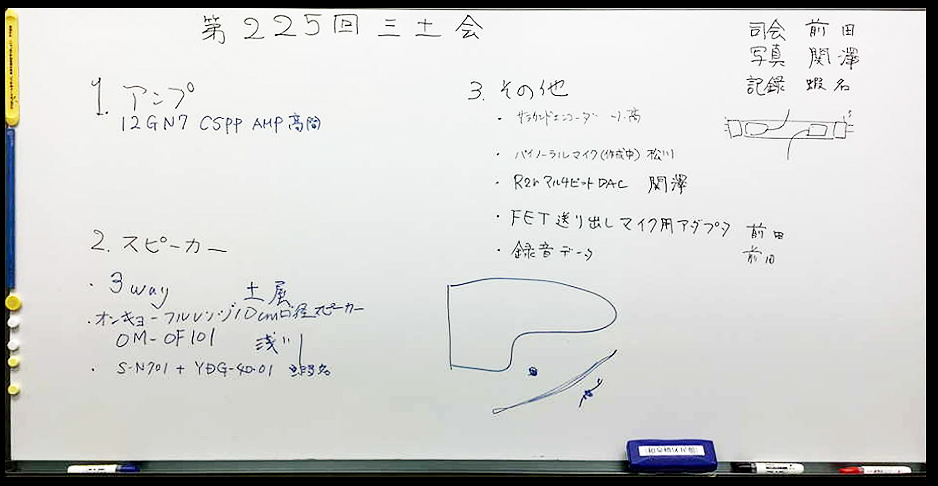 第225回 三土会
司会 前田
写真 関澤
記録 蝦名
1. アンプ
12GN7 CSPP AMP 高間
2. スピーカー
・3way 土屋
・オンキョーフルレンジ10cm口径スピーカー
OM-OF101 浅川
・S-N701 + YDG-40-01
3. その他
・サラウンドエンコーダー 小高
・バイノーラルマイク(作成中) 松川
・R2rマルチビットDAC 関澤
・FET送り出しマイク用アダプタ 前田
・録音データ 前田